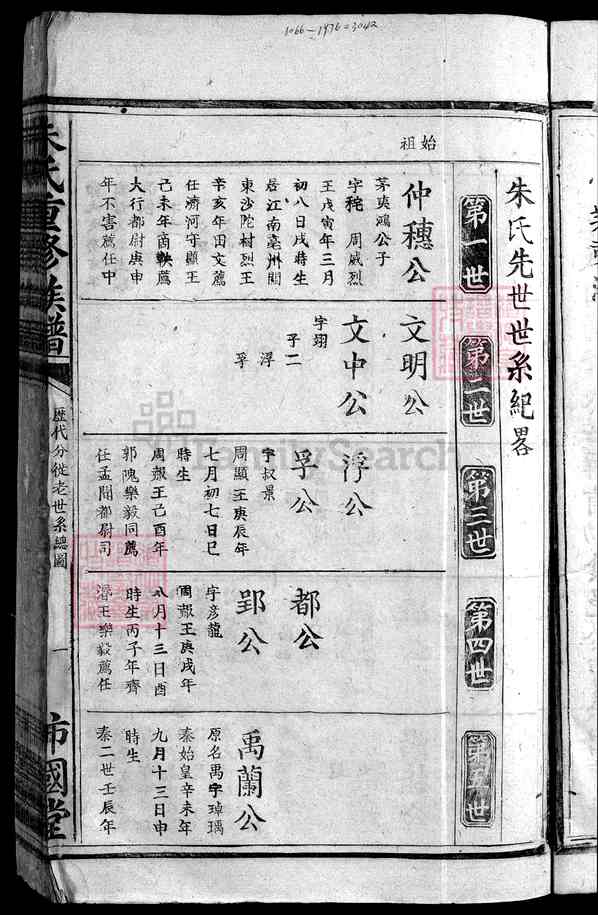 1066-1476=3042
朱氏先世世系紀畧
第一世
第二世
第三世
第四世
第五世
始祖
仲穗公
茅夾鴻公子
字秺 周威烈
王戊寅年三月
初八日戌時生
居江南亳州関
東沙陀村烈王
辛亥年田文薦
任濟河守顯王
己未年商鞅薦
大行都尉庚申
年不害薦任中
文明公
文中公
字翊
子二
浮
孚
浮公
孚公
字叔景
周顯王庚辰年
七月初七日巳
時生
周赧王己酉年
郭隗樂毅同薦
任孟閭都尉司
都公
郢公
字彥龍
周赧王庚戌年
八月十三日酉
時生丙子年齊
湣王樂毅薦任
禹蘭公
原名禺字瑋瑀
秦始皇辛未年
九月十三日申
時生
秦二世壬辰年
朱氏重修族譜
歷代分從老世系總圖
一
市國堂
FamilySearch